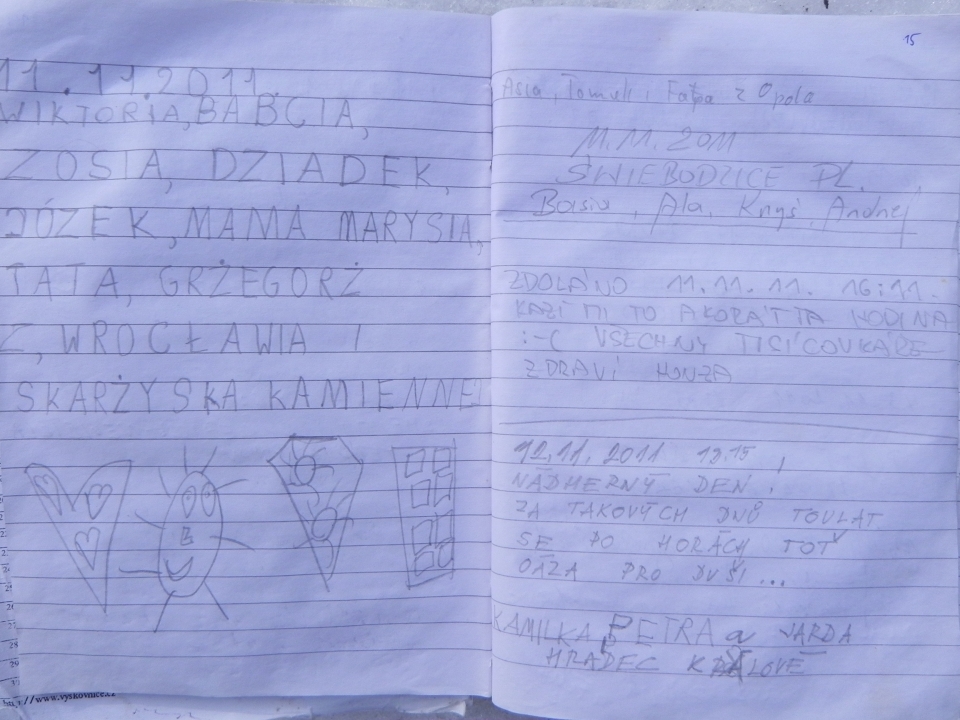 11.11.2011.
WIKTORIA, BABCIA,
ZOSIA, DZIADEK,
JÓZEK, MAMA MARYSIA,
TATA, GRŻEGORŻ
Z, WROCŁAWIA I
SKARŻYSKA KAMIENNEJ
http://www.vyskovnice.cz
15
Asia, Tomek i z Opola
11.11.2011
ŚWIEBODZICE PL.
Basia, Ala, Krzyś, Andrzej
ZDOLÁNO 11.11.11. 16:11.
KAZÍ MI TO AKORÁT TA HODINA
:-( VŠECHNY TISÍCOVKÁŘE
ZDRAVÍ HONZA
12.11.2011 13.15
NÁDHERNÝ DEN!
ZA TAKOVÝCH DNŮ TOULAT
SE PO HORÁCH TOŤ
OÁZA PRO DUŠI...
KAMILKA, PETRA a JARDA
HRADEC KRÁLOVÉ